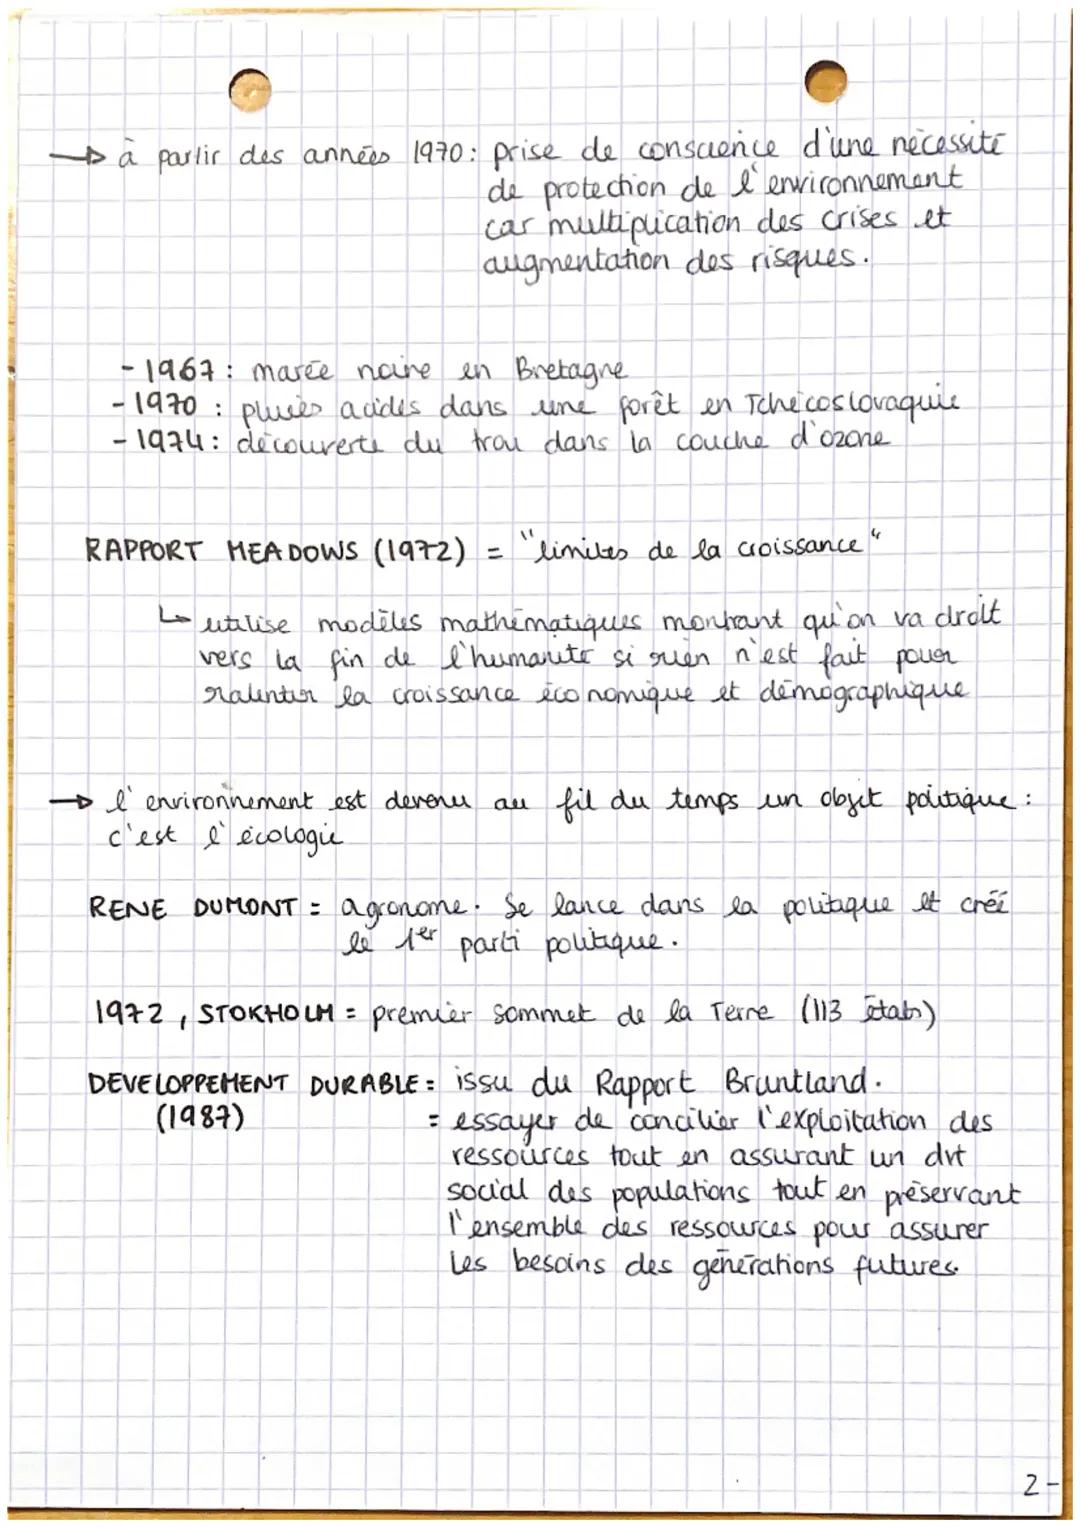 → à partir des années 1970 : prise de conscience d'une nécessité
de protection de l'environnement
car multiplication des crises et
augmentation des risques.
- 1967 : marée noire en Bretagne
- 1970 : pluies acides dans une forêt en Tchécoslovaquie
- 1974 : découverte du trou dans la couche d'ozone
RAPPORT MEADOWS (1972) = "limites de la croissance"
↳ utilise modèles mathématiques montrant qu'on va droit
vers la fin de l'humanité si rien n'est fait pour
ralentir la croissance économique et démographique
→ l'environnement est devenu au fil du temps un objet politique :
c'est l'écologie
RENE DUMONT = agronome. Se lance dans la politique et créé
le 1er parti politique.
1972, STOKHOLM = premier sommet de la Terre (113 États)
DEVELOPPEMENT DURABLE = issu du Rapport Bruntland.
(1987) = essayer de concilier l'exploitation des
ressources tout en assurant un dvt
social des populations tout en préservant
l'ensemble des ressources pour assurer
les besoins des générations futures.
2-